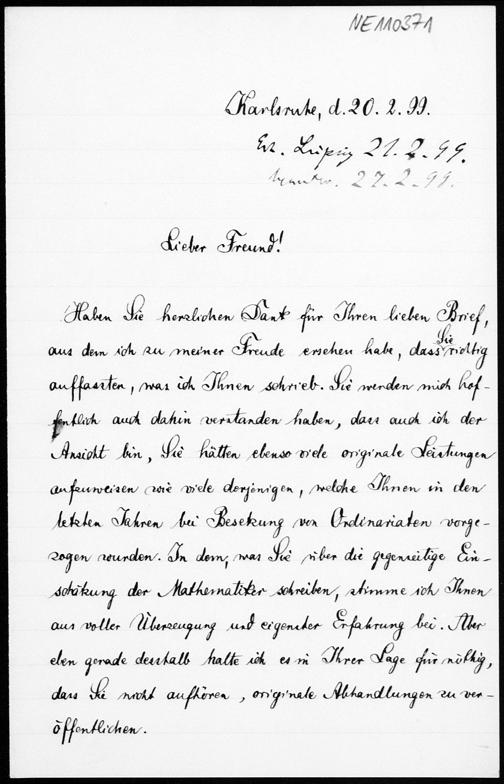 NE110371
Karlsruhe, d. 20. 2. 99.
Erh. Leipzig 21. 2. 99.
27. 2. 99.
Lieber Freund!
Haben Sie herzlichen Dank für Ihren lieben Brief,
aus dem ich zu meiner Freude ersehen habe, dass Sie richtig
auffassten, was ich Ihnen schrieb. Sie werden mich hof-
fentlich auch dahin verstanden haben, dass auch ich der
Ansicht bin, Sie hätten ebenso viele originale Leistungen
aufzuweisen wie viele derjenigen, welche Ihnen in den
letzten Jahren bei Besetzung von Ordinariaten vorge-
zogen wurden. In dem, was Sie über die gegenseitige Ein-
schätzung der Mathematiker schreiben, stimme ich Ihnen
aus voller Überzeugung und eigenster Erfahrung bei. Aber
eben gerade desshalb halte ich es in Ihrer Lage für nöthig,
dass Sie nicht aufhören, originale Abhandlungen zu ver-
öffentlichen.